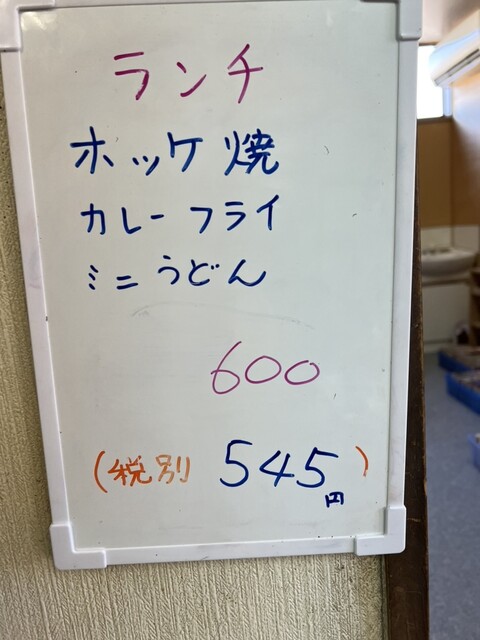 ランチ
ホッケ焼
カレーフライ
ミニうどん
600
(税別 545円)